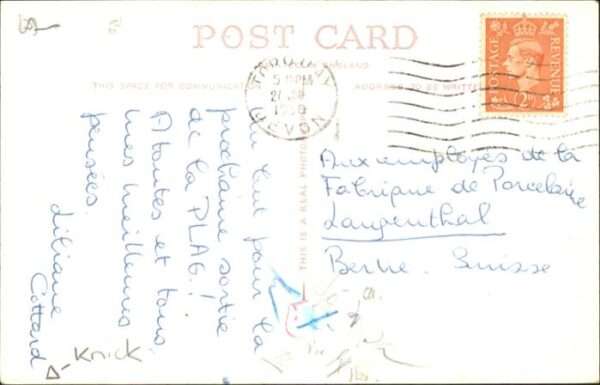 POST CARD
THIS SPACE FOR COMMUNICATION
ADDRESS TO BE WRITTEN
THIS IS A REAL PHOTO
TORQUAY
5 PM
1950
DEVON
POSTAGE
REVENUE
2D
pour la
prochaine sortie
de la PLAG.!
A toutes et tous
mes meilleures
pensées.
Liliane
Cottard
Knick
Aux employés de la
Fabrique de Porcelaine
Langenthal
Berne. Suisse